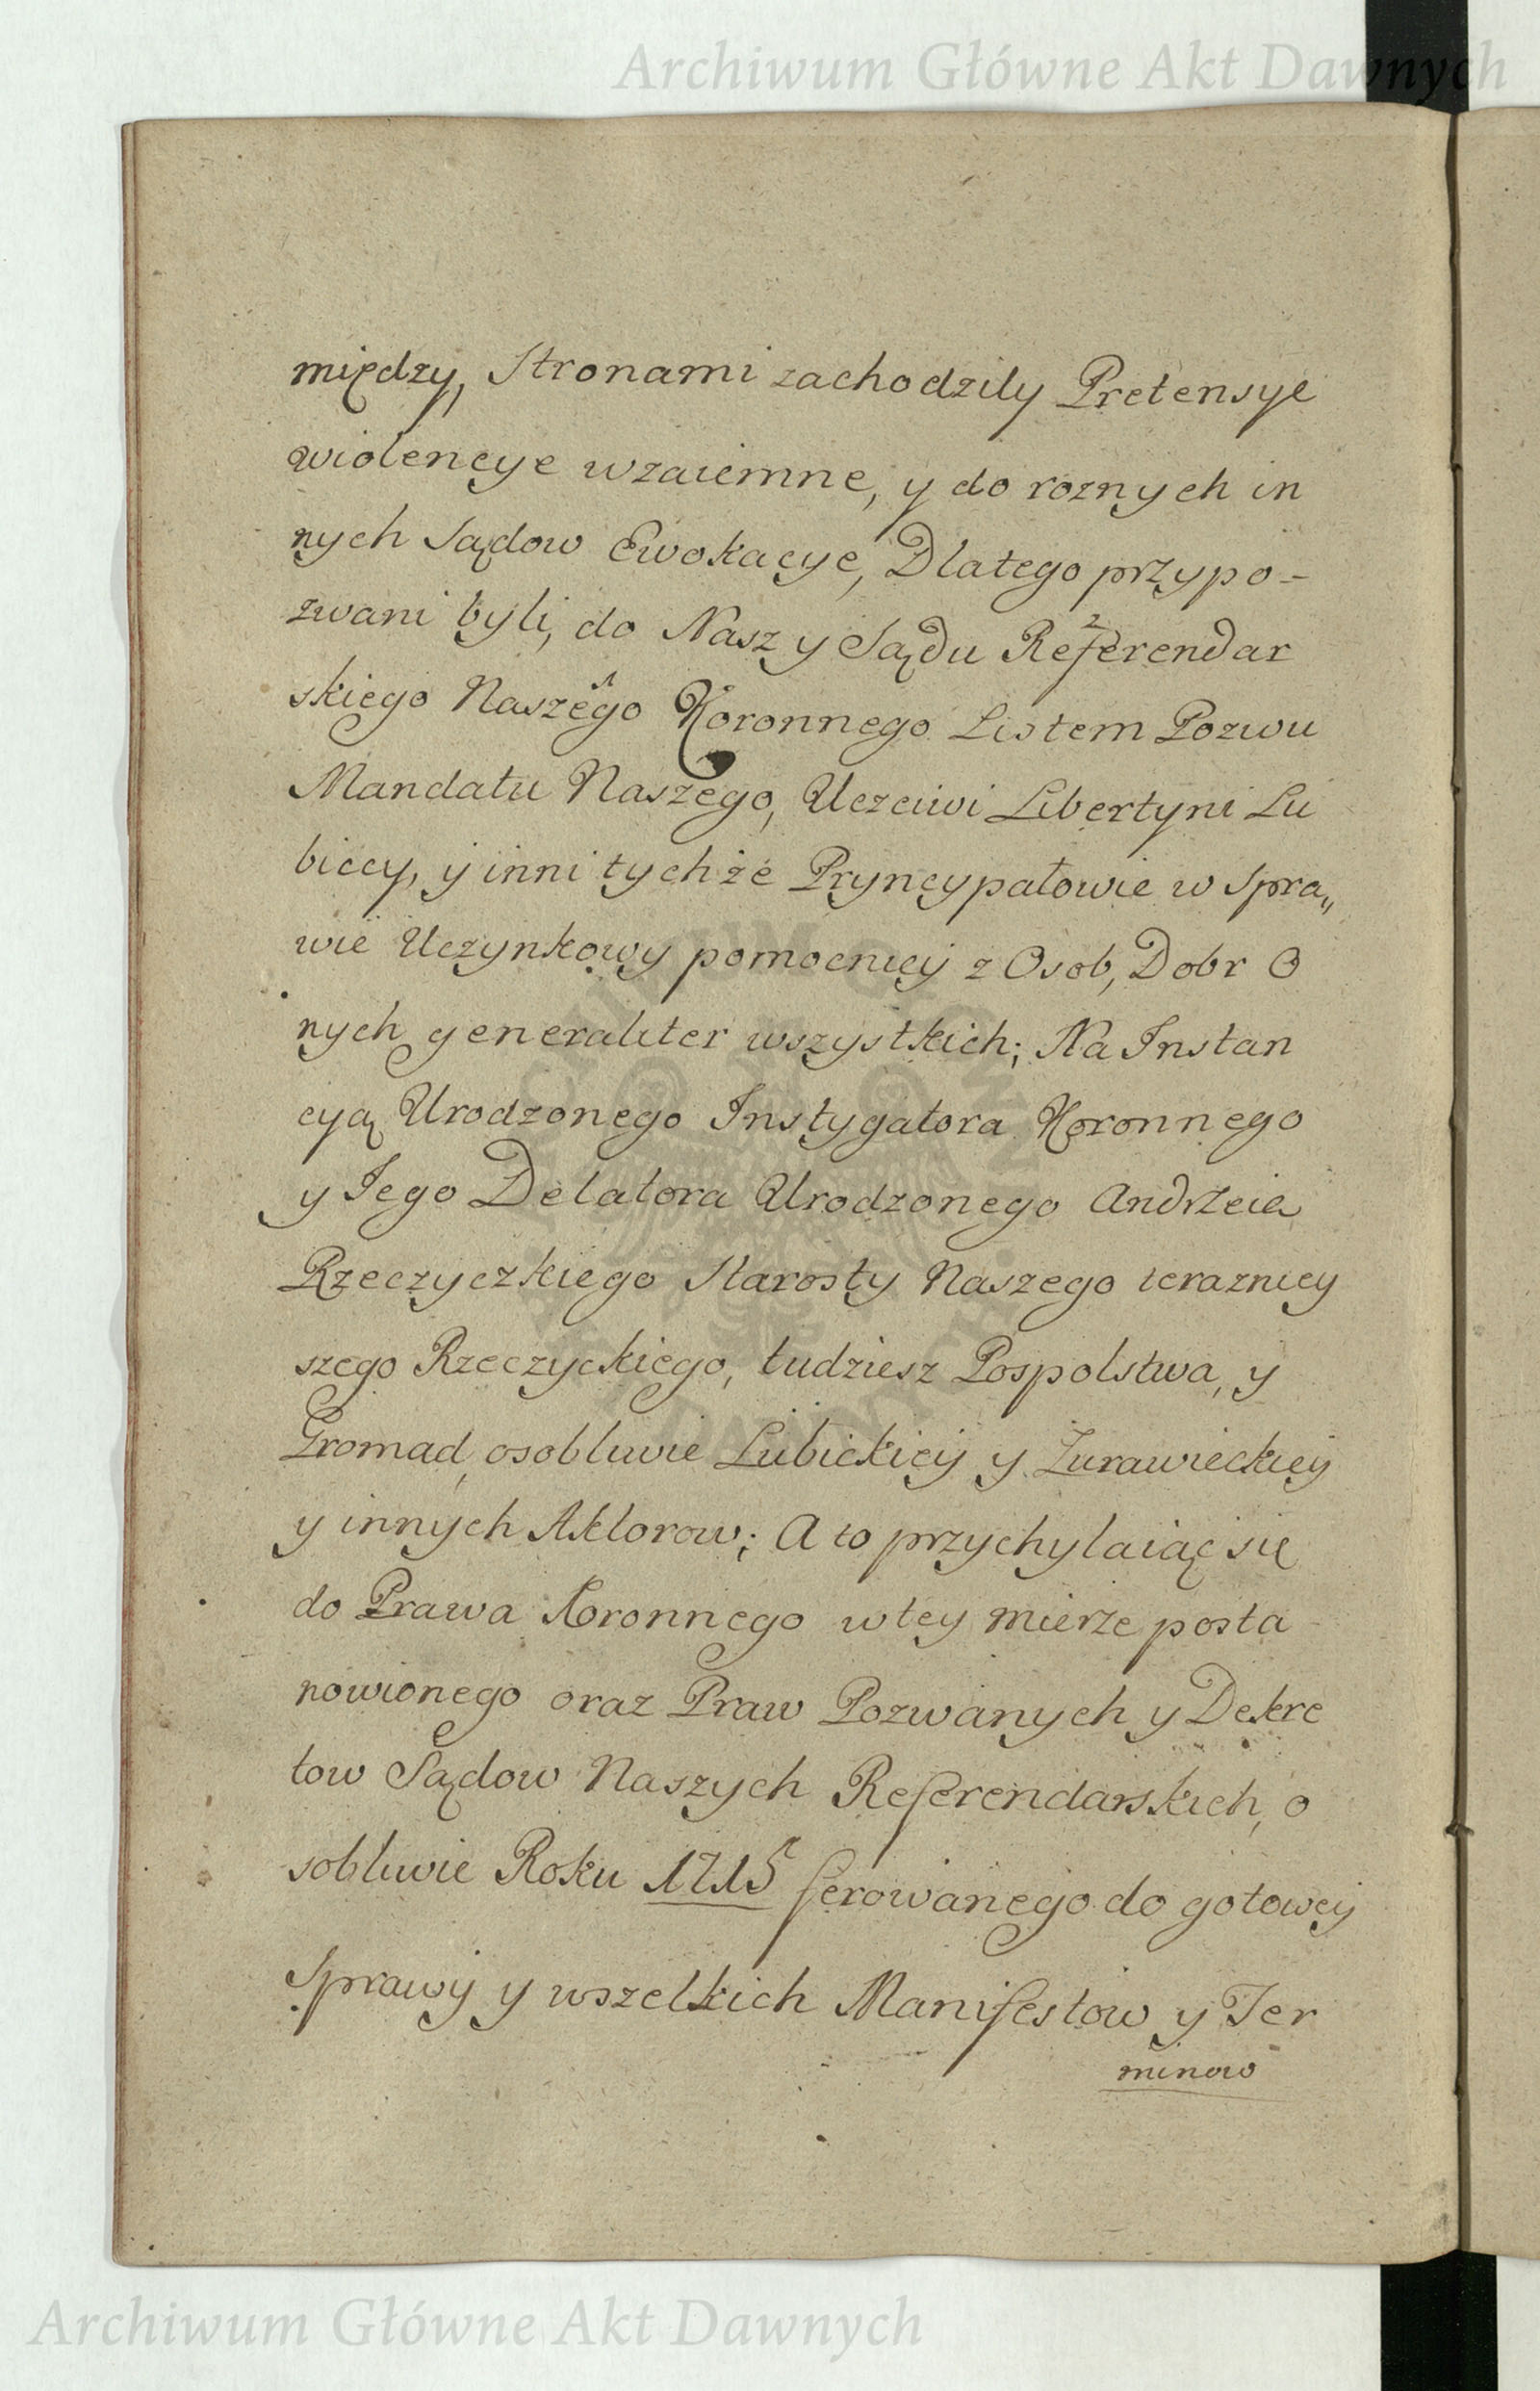 Archiwum Główne Akt Dawnych
między, Stronami zachodziły Pretensye
wiolencye wzaiemne, y do roznych in
nych Sądow Ewokacye, Dlatego przypo-
zwani byli, do Naszy Sądu Referendar
skiego Naszego Koronnego Listem Pozwu
Mandatu Naszego, Uczciwi Libertyni Lu
biccy, y inni tychże Pryncypałowie w Spra„
wie Uczynkowy pomocniey z Osob, Dobr O
nych generaliter wszystkich; Na Instan
cyą Urodzonego Instygatora Koronnego
y Jego Delatora Urodzonego Andrzeia
Rzeczyczkiego Starosty Naszego terazniey
szego Rzeczyckiego, tudziesz Pospolstwa, y
Gromad, osobliwie Lubickiey y Żurawieckiey
y innych Aktorow; A to przychylaiąc się
do Prawa Koronnego wtey mierze posta
nowionego oraz Praw Pozwanych y Dekre
tow Sądow Naszych Referendarskich, o
sobliwie Roku 1715 ferowanego do gotowey
Sprawy y wszelkich Manifestow y Ter
minow
Archiwum Główne Akt Dawnych